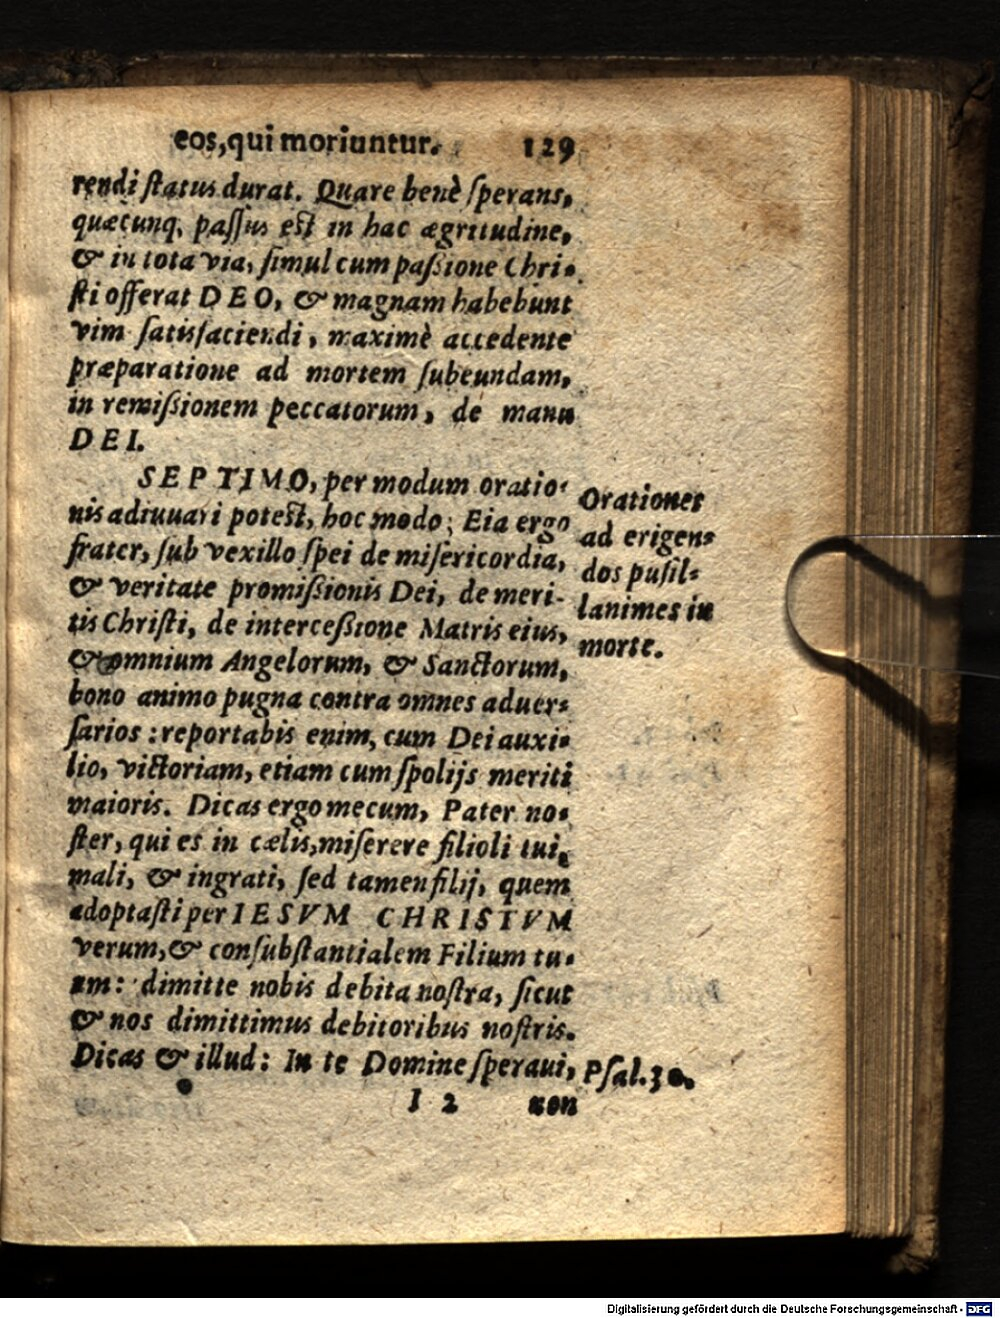 eos, qui moriuntur. 129
rendi ſtatus durat. Quare benè ſperans,
quæcunq; paſſus eſt in hac ægritudine,
& in tota via, ſimul cum paſsione Chri-
ſti offerat DEO, & magnam habebunt
vim ſatisfaciendi, maximè accedente
præparatione ad mortem ſubeundam,
in remiſsionem peccatorum, de manu
DEI.
SEPTIMO, per modum oratio-
nis adiuuari poteſt, hoc modo; Eia ergo
frater, ſub vexillo ſpei de miſericordia,
& veritate promiſsionis Dei, de meri-
tis Chriſti, de interceſsione Matris eius,
& omnium Angelorum, & Sanctorum,
bono animo pugna contra omnes aduer-
ſarios: reportabis enim, cum Dei auxi-
lio, victoriam, etiam cum ſpolijs meriti
maioris. Dicas ergo mecum, Pater no-
ſter, qui es in cælis, miſerere filioli tui,
mali, & ingrati, ſed tamen filij, quem
adoptaſti per IESVM CHRISTVM
verum, & conſubſtantialem Filium tu-
um: dimitte nobis debita noſtra, ſicut
& nos dimittimus debitoribus noſtris.
Dicas & illud: In te Domine ſperaui,
I 2 non
Orationes
ad erigen-
dos puſil-
lanimes in
morte.
Pſal. 30.
Digitalisierung gefördert durch die Deutsche Forschungsgemeinschaft - DFG